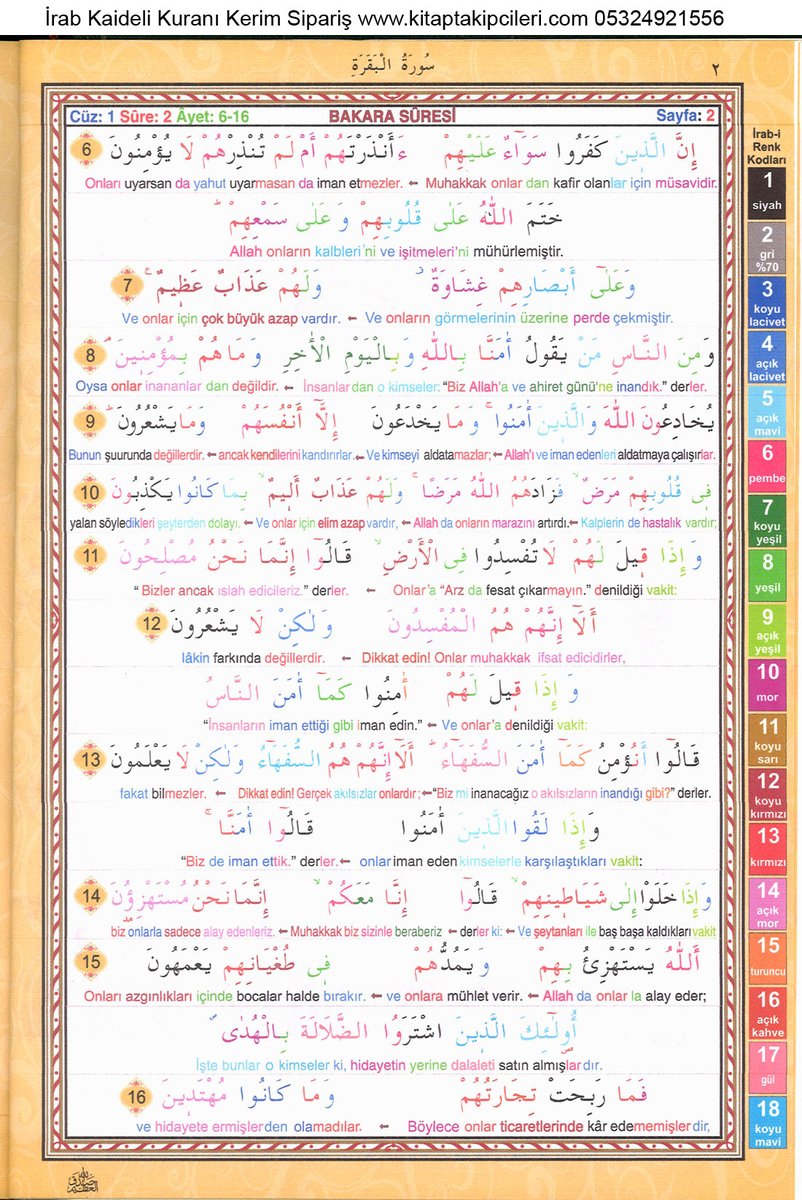 İrab Kaideli Kuranı Kerim Sipariş www.kitaptakipcileri.com 05324921556
سُورَةُ الْبَقَرَةِ ٢
Cüz: 1 Sûre: 2 Âyet: 6-16 BAKARA SÛRESİ Sayfa: 2
اِنَّ الَّذِينَ كَفَرُوا سَوَٓاءٌ عَلَيْهِمْ ءَاَنْذَرْتَهُمْ اَمْ لَمْ تُنْذِرْهُمْ لَا يُؤْمِنُونَ 6
Onları uyarsan da yahut uyarmasan da iman etmezler. ← Muhakkak onlar dan kafir olanlar için müsavidir.
خَتَمَ اللّٰهُ عَلٰى قُلُوبِهِمْ وَ عَلٰى سَمْعِهِمْ
Allah onların kalbleri'ni ve işitmeleri'ni mühürlemiştir.
وَعَلٰٓى اَبْصَارِهِمْ غِشَاوَةٌ وَلَهُمْ عَذَابٌ عَظِيمٌ 7
Ve onlar için çok büyük azap vardır. ← Ve onların görmelerinin üzerine perde çekmiştir.
وَمِنَ النَّاسِ مَنْ يَقُولُ اٰمَنَّا بِاللّٰهِ وَبِالْيَوْمِ الْاٰخِرِ وَمَا هُمْ بِمُؤْمِنِينَ 8
Oysa onlar inananlar dan değildir. ← İnsanlardan o kimseler: “Biz Allah'a ve ahiret günü'ne inandık.” derler.
يُخَادِعُونَ اللّٰهَ وَالَّذِينَ اٰمَنُوا وَ مَا يَخْدَعُونَ اِلَّٓا اَنْفُسَهُمْ وَمَا يَشْعُرُونَ 9
Bunun şuurunda değillerdir. ← ancak kendilerini kandırırlar. ← Ve kimseyi aldatamazlar; ← Allah'ı ve iman edenleri aldatmaya çalışırlar.
فِى قُلُوبِهِمْ مَرَضٌ فَزَادَهُمُ اللّٰهُ مَرَضًا وَلَهُمْ عَذَابٌ اَلِيمٌ بِمَا كَانُوا يَكْذِبُونَ 10
yalan söyledikleri şeylerden dolayı. ← Ve onlar için elim azap vardır, ← Allah da onların marazını artırdı. ← Kalplerin de hastalık vardır;
وَ اِذَا قِيلَ لَهُمْ لَا تُفْسِدُوا فِى الْاَرْضِ قَالُٓوا اِنَّمَا نَحْنُ مُصْلِحُونَ 11
“ Bizler ancak ıslah edicileriz.” derler. ← Onlar'a “Arz da fesat çıkarmayın.” denildiği vakit:
اَلَٓا اِنَّهُمْ هُمُ الْمُفْسِدُونَ وَ لٰكِنْ لَا يَشْعُرُونَ 12
lâkin farkında değillerdir. ← Dikkat edin! Onlar muhakkak ifsat edicidirler,
وَ اِذَا قِيلَ لَهُمْ اٰمِنُوا كَمَٓا اٰمَنَ النَّاسُ
“İnsanların iman ettiği gibi iman edin.” ← Ve onlar'a denildiği vakit:
قَالُٓوا اَنُؤْمِنُ كَمَٓا اٰمَنَ السُّفَهَٓاءُ اَلَٓا اِنَّهُمْ هُمُ السُّفَهَٓاءُ وَلٰكِنْ لَا يَعْلَمُونَ 13
fakat bilmezler. ← Dikkat edin! Gerçek akılsızlar onlardır; ← “Biz mi inanacağız o akılsızların inandığı gibi?” derler.
وَاِذَا لَقُوا الَّذِينَ اٰمَنُوا قَالُٓوا اٰمَنَّا
“Biz de iman ettik.” derler. ← onlar iman eden kimselerle karşılaştıkları vakit:
وَ اِذَا خَلَوْا اِلٰى شَيَاطِينِهِمْ قَالُٓوا اِنَّا مَعَكُمْ اِنَّمَا نَحْنُ مُسْتَهْزِؤُنَ 14
biz onlarla sadece alay edenleriz. ← Muhakkak biz sizinle beraberiz ← derler ki: ← Ve şeytanları ile baş başa kaldıkları vakit
اَللّٰهُ يَسْتَهْزِئُ بِهِمْ وَ يَمُدُّهُمْ فِى طُغْيَانِهِمْ يَعْمَهُونَ 15
Onları azgınlıkları içinde bocalar halde bırakır. ← ve onlara mühlet verir. ← Allah da onlar la alay eder;
اُولٰٓئِكَ الَّذِينَ اشْتَرَوُا الضَّلَالَةَ بِالْهُدٰى
İşte bunlar o kimseler ki, hidayetin yerine dalaleti satın almışlardır.
فَمَا رَبِحَتْ تِجَارَتُهُمْ وَ مَا كَانُوا مُهْتَدِينَ 16
ve hidayete ermişlerden olamadılar. ← Böylece onlar ticaretlerinde kâr edememişlerdir,
İrab-i
Renk
Kodları
1
siyah
2
gri
%70
3
koyu
lacivet
4
açık
lacivet
5
açık
mavi
6
pembe
7
koyu
yeşil
8
yeşil
9
açık
yeşil
10
mor
11
koyu
sarı
12
koyu
kırmızı
13
kırmızı
14
açık
mor
15
turuncu
16
açık
kahve
17
gül
18
koyu
mavi